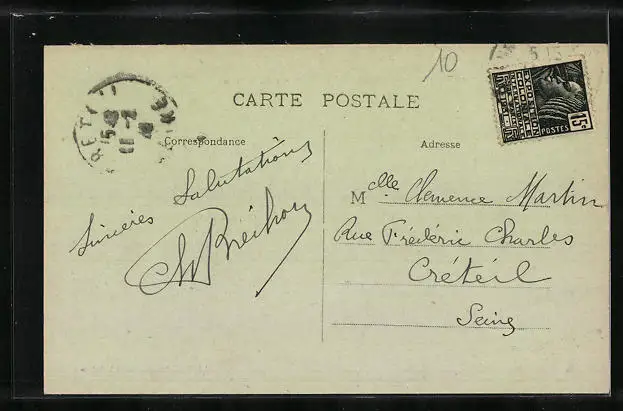 10
CARTE POSTALE
Correspondance
Adresse
Sincères Salutations
Mlle Clemence Martin
Rue Frédéric Charles
Créteil
Seine
EXPOSITION
COLONIALE
INTERNATIONALE
POSTES
15c